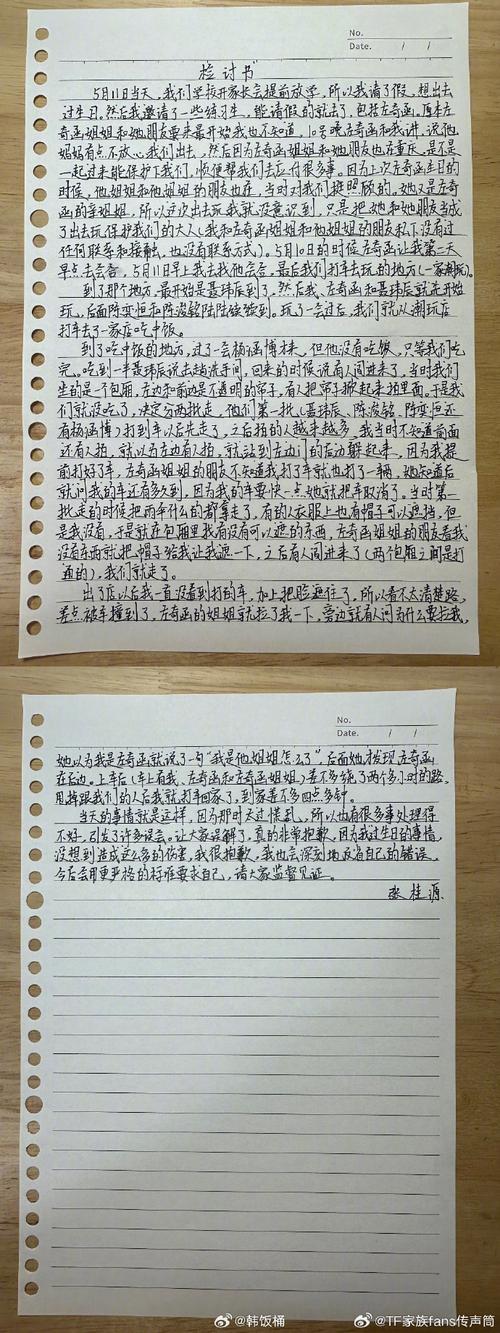 No.
Date. / /
检讨书
5月11日当天,我们学校开家长会提前放学,所以我请了假,想出去
过生日。然后我邀请了一些练习生,能请假的就去了,包括左奇函。原本左
奇函姐姐和她朋友要来最开始我也不知道,10号晚左奇函和我讲,说他
妈妈有点不放心我们出去,然后因为左奇函姐姐和她朋友也在重庆,是不是
一起过来能保护下我们,顺便帮我们去应付很多事。因为上次左奇函生日的
时候,他姐姐和他姐姐的朋友也在,当时对我们挺照顾的,她又是左奇
函的亲姐姐,所以这次出去玩我就没意识到,只是把她和她朋友当成
了出去玩保护我们的大人(我和左奇函姐姐和他姐姐的朋友私下没有过
任何联系和接触,也没有联系方式)。5月10日的时候左奇函让我第二天
早点去会合,5月11日早上我去找他会合,最后我们打车去玩的地方(一家潮玩)。
到了那个地方,最开始是聂玮辰到了,然后我、左奇函和聂玮辰就先开始
玩,后面陈奕恒和陈浚铭陆陆续续到。玩了一会过后,我们就从潮玩店
打车去了一家店吃中饭。
到了吃中饭的地方,过了一会杨涵博才来,但他没有吃饭,只等我们吃
完。吃到一半聂玮辰说出去趟洗手间,回来的时候说有人闯进来了,当时我们
坐的是个包厢,左边和前边是不透明的帘子,有人把帘子掀起来拍里面。于是我
们就没吃了,决定分两批走,他们第一批(聂玮辰、陈浚铭、陈奕恒还
有杨涵博)打到车以后先走了,之后拍的人越来越多,我当时不知道前面
还有人拍,就以为左边有人拍,就站到左边门的后边躲起来,因为我提
前打好了车,左奇函姐姐的朋友不知道我打了车就也打了一辆,她知道后
就问我的车还有多久到,因为我的车要快一点她就把车取消了,当时第一
批走的时候把雨伞什么的都拿走了,有的人衣服上也有帽子可以遮挡,但
是我没有,于是就在包厢里找有没有可以遮的东西,左奇函姐姐的朋友看我
没有东西就把帽子给我让我遮一下,之后有人闯进来了(两个包厢之间是打
通的),我们就走了。
出了店以后我一直没看到打的车,加上把脸遮住了,所以看不太清楚路,
差点被车撞到了,左奇函的姐姐就拉了我一下,旁边就有人问为什么要拉我,
No.
Date. / /
她以为我是左奇函就说了一句“我是他姐姐怎么了”,后面她才发现左奇函
在后边。上车后(车上有我、左奇函和左奇函姐姐)差不多绕了两个多小时的路,
甩掉跟我们的人后我就打车回家了,到家差不多四点多钟。
当天的事情就是这样,因为那时太慌乱,所以也有很多事处理得
不好,引发了许多误会。让大家误解了,真的非常抱歉,因为我过生日的事情,
没想到造成这么多的伤害,我很抱歉,我也会深刻地反省自己的错误,
今后会用更严格的标准要求自己,请大家监督见证。
张桂源
@韩饭桶
@TF家族fans传声筒